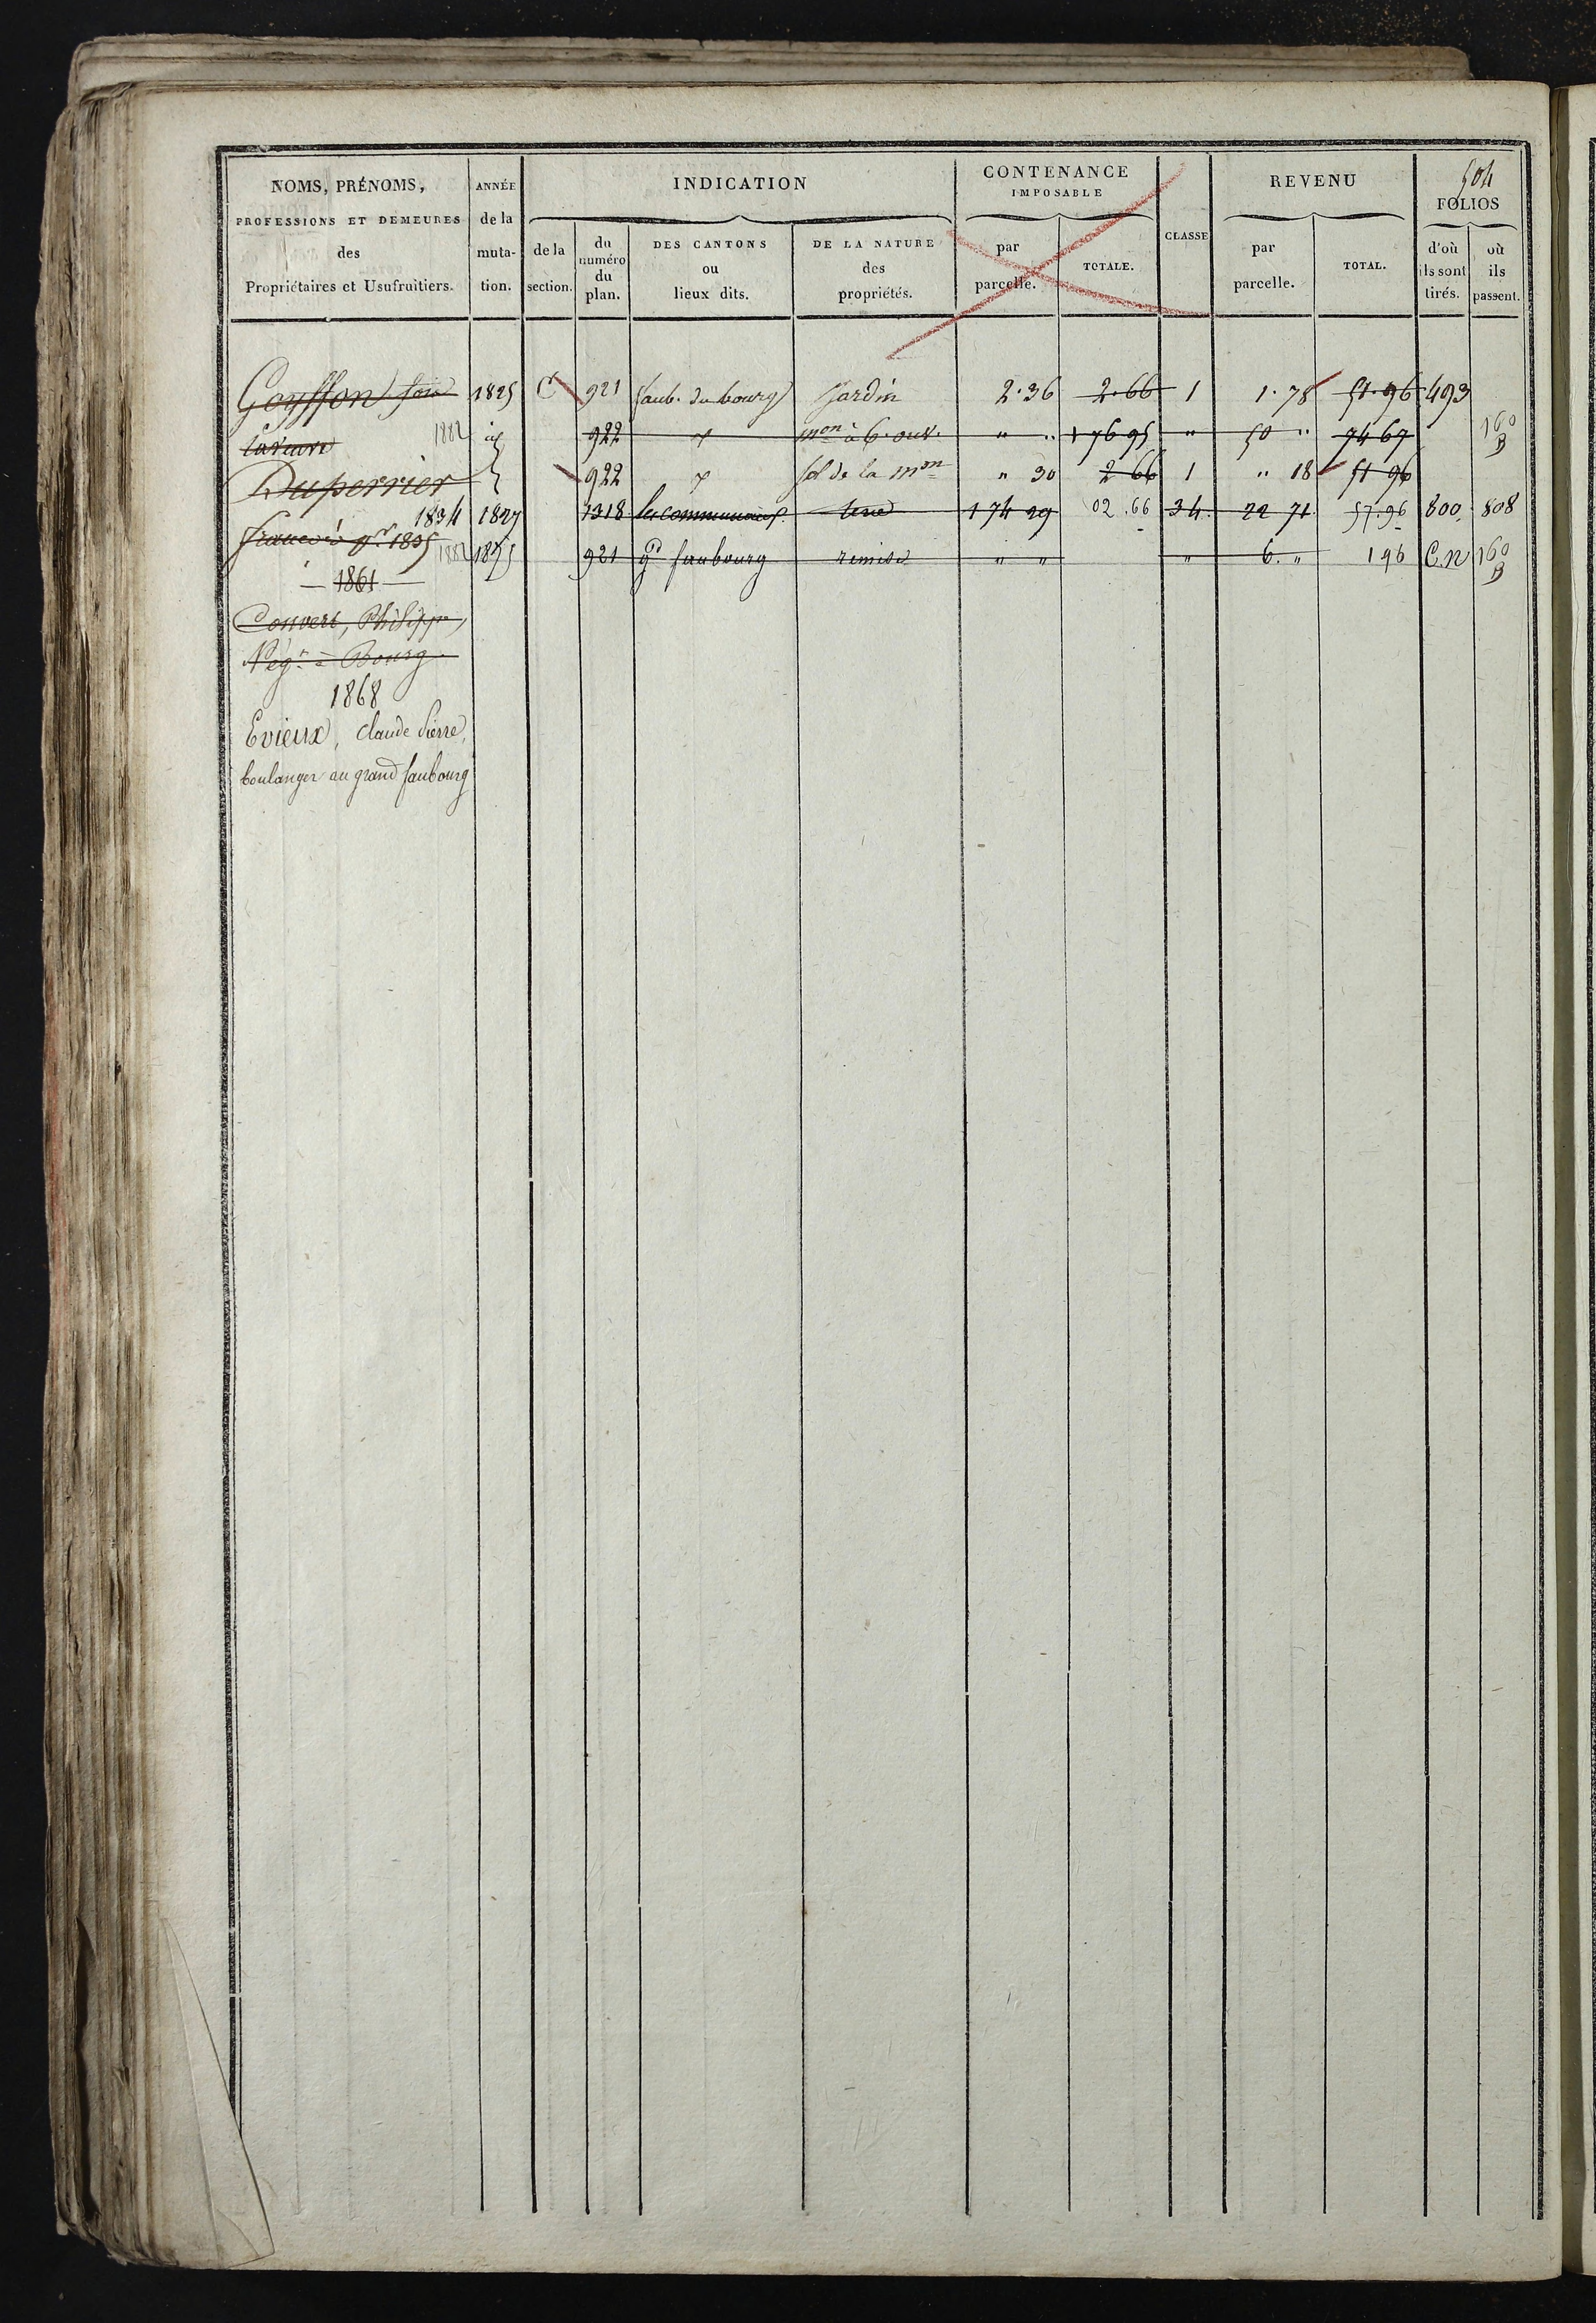 504
NOMS, PRÉNOMS,
PROFESSIONS ET DEMEURES
des
Propriétaires et Usufruitiers.
ANNÉE
de la
muta-
tion.
INDICATION
de la
section.
du
numéro
du
plan.
DES CANTONS
ou
lieux dits.
DE LA NATURE
des
propriétés.
CONTENANCE
IMPOSABLE
par
parcelle.
TOTALE.
CLASSE
REVENU
par
parcelle.
TOTAL.
FOLIOS
d'où
ils sont
tirés.
où
ils
passent.
Goyffon 1825 C 921 faub. du bourg Jardin 2.36 2.66 1 1.78 51.96 493
la veuve 1882 922 mon à 6. ouv. " " 1 76 95 " 50 " 74 67 160 B
Duperrier 922 sol de la mon " 30 2 66 1 " 18 51 96
1834 1827 1318 les communaux terre 1 74 29 02.66 34. 22 71 57.96 800 808
françois 1835 1882 1875 921 gd faubourg remise " " " 6. " 196 C.N 160 B
1861
Convert, Philippe,
Négt à Bourg
1868
Evieux, Claude Pierre,
boulanger au grand faubourg